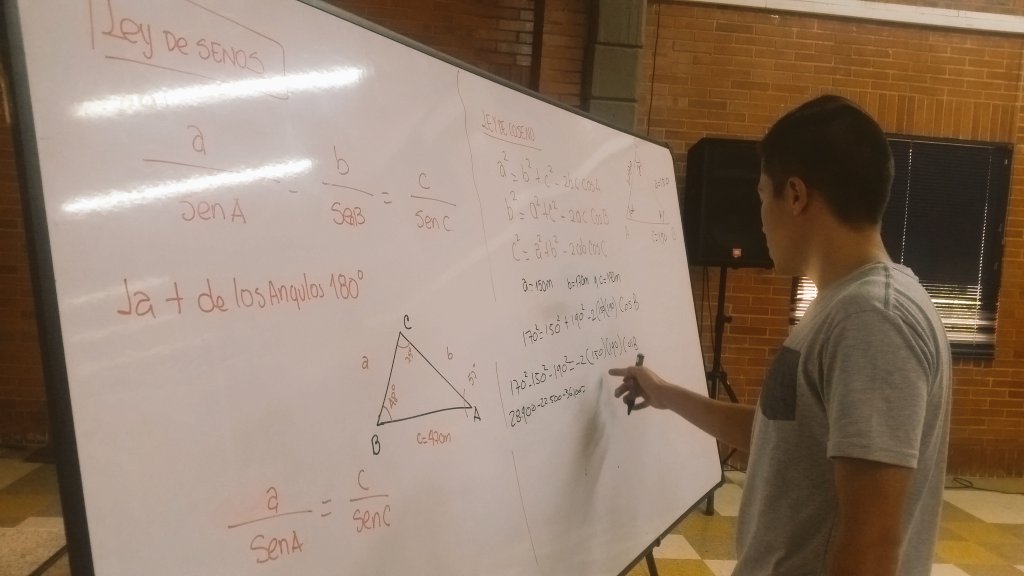 Ley DE SENOS
a / SenA = b / SenB = c / SenC
La + de los Angulos 180°
C
a b
B A
c=42cm
a / SenA = c / SenC
LEY DE COSENO
a² = b² + c² - 2bc cosA
b² = a² + c² - 2ac CosB
c² = a² + b² - 2ab CosC
a=150m b=170m y c=190m
170² = 150² + 190² - 2(150)(190) CosB
170² - 150² - 190² = -2(150)(190) CosB
28900 - 22.500 - 36100 =